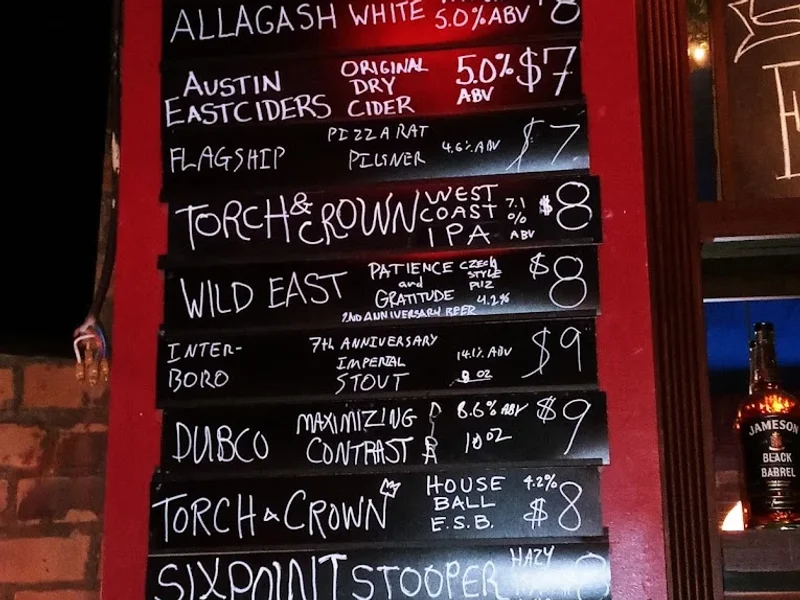 ALLAGASH WHITE 5.0% ABV 8
AUSTIN EASTCIDERS ORIGINAL DRY CIDER 5.0% ABV $7
FLAGSHIP PIZZA RAT PILSNER 4.6% ABV $7
TORCH & CROWN WEST COAST IPA 7.1 % ABV $8
WILD EAST PATIENCE and GRATITUDE CZECH STYLE PILZ 4.2% $8
2ND ANNIVERSARY BEER
INTER-
BORO 7th ANNIVERSARY IMPERIAL STOUT 14.1% ABV 8 OZ $9
DUBCO MAXIMIZING CONTRAST 8.6% ABV 10 OZ $9
TORCH & CROWN HOUSE BALL E.S.B. 4.2% $8
SIXPOINT STOOPER HAZY
JAMESON
BLACK
BARREL